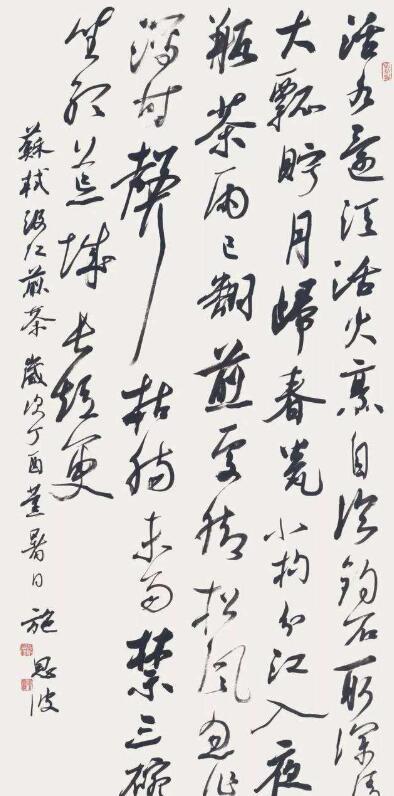 活水還須活火烹自臨釣石取深清
大瓢貯月歸春甕小杓分江入夜
瓶茶雨已翻煎處腳松風忽作
瀉時聲枯腸未易禁三碗
坐聽荒城長短更
蘇軾汲江煎茶 歲次丁酉暑日 施恩波